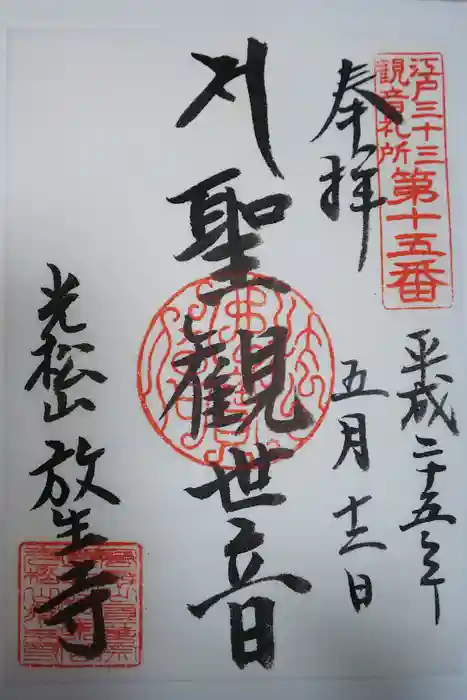 江戸三十三
観音札所
第十五番
奉拝
平成二十五年
五月
聖観世音
光松山
放生寺